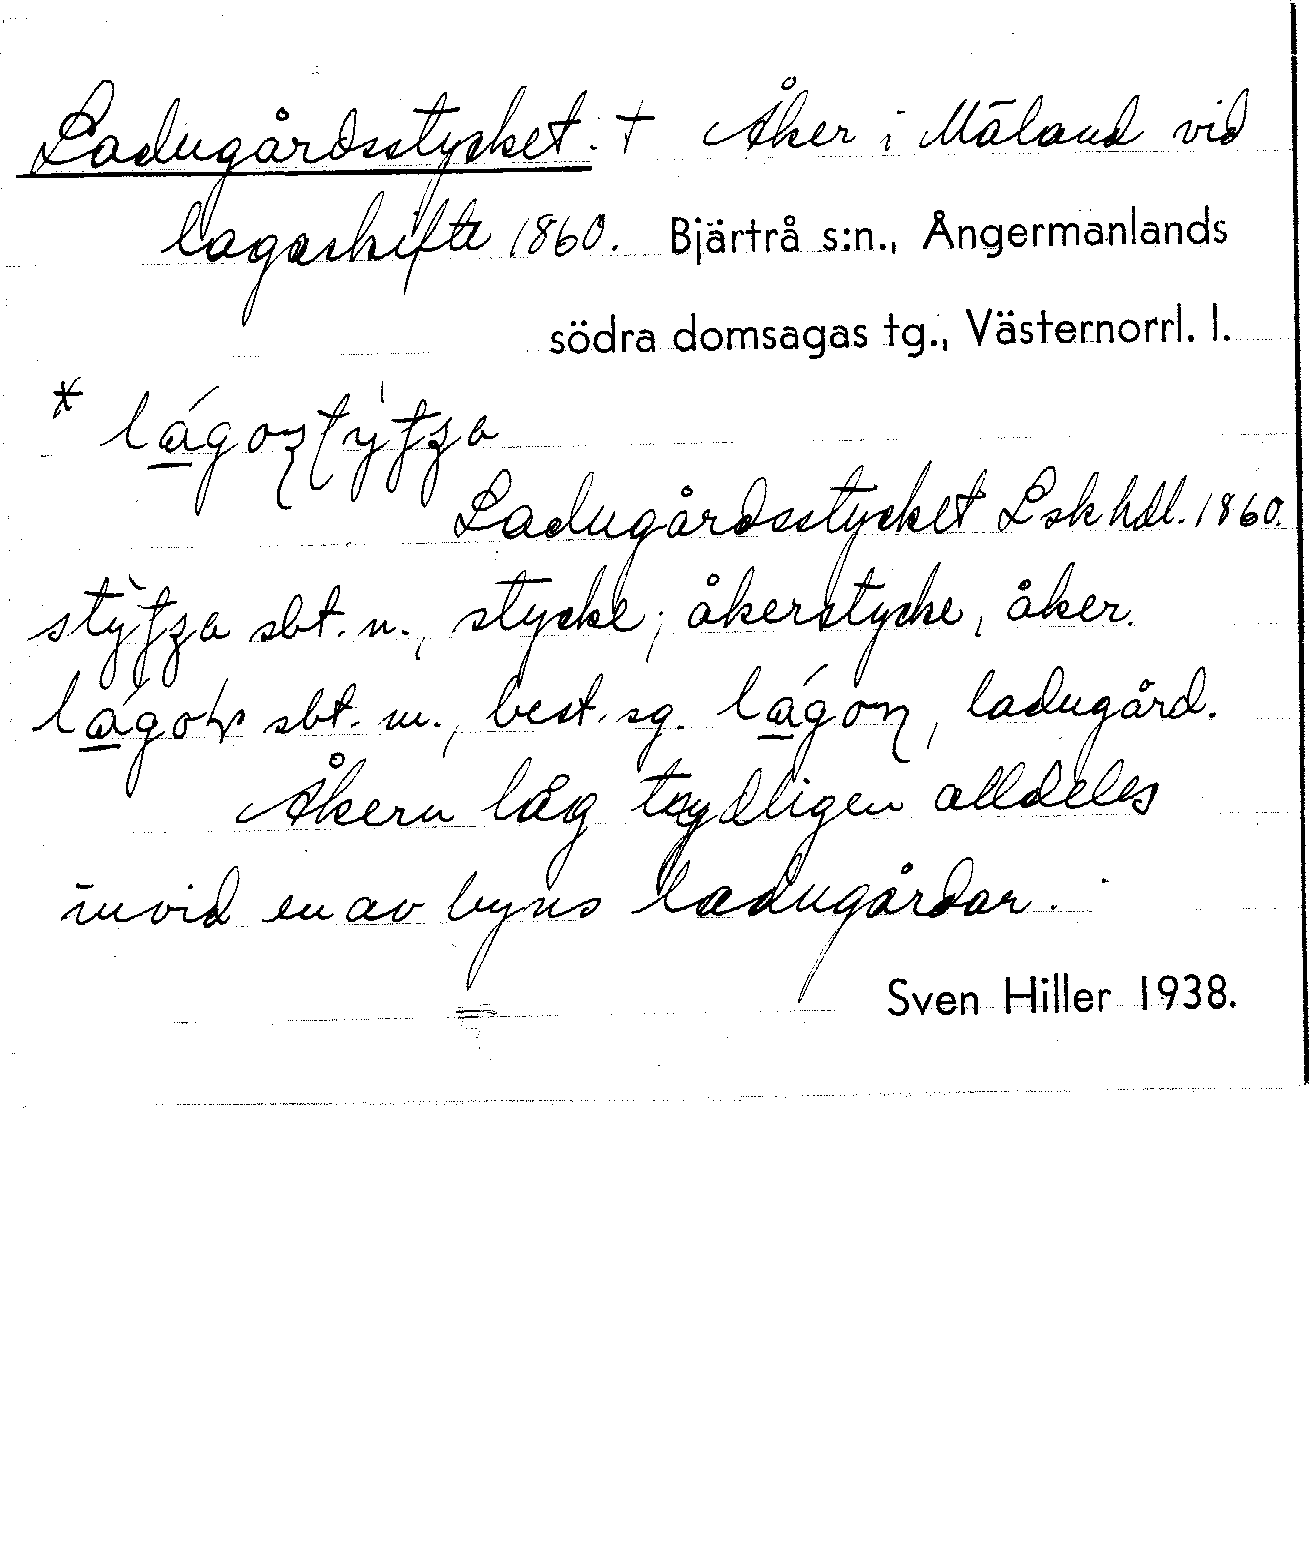 Ladugårdsstycket. † Åker i Mäland vid
lagaskifte 1860. Bjärtrå s:n., Ångermanlands
södra domsagas tg., Västernorrl. l.
Ladugårdsstycket Lskhdl. 1860.
sbt. n., stycke; åkerstycke, åker.
sbt. m., best. sg. ladugård.
Åkern låg tydligen alldeles
invid en av byns ladugårdar.
Sven Hiller 1938.